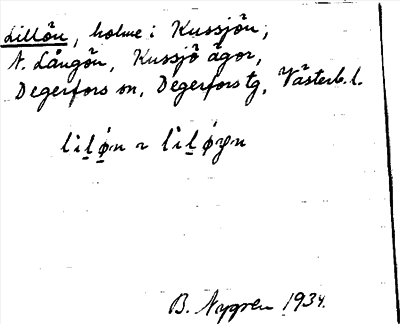 Lillön, holme i Kussjön,
N. Långön, Kussjö ägor,
Degerfors sn, Degerfors tg, Västerb. l.
B. Nygren 1934.